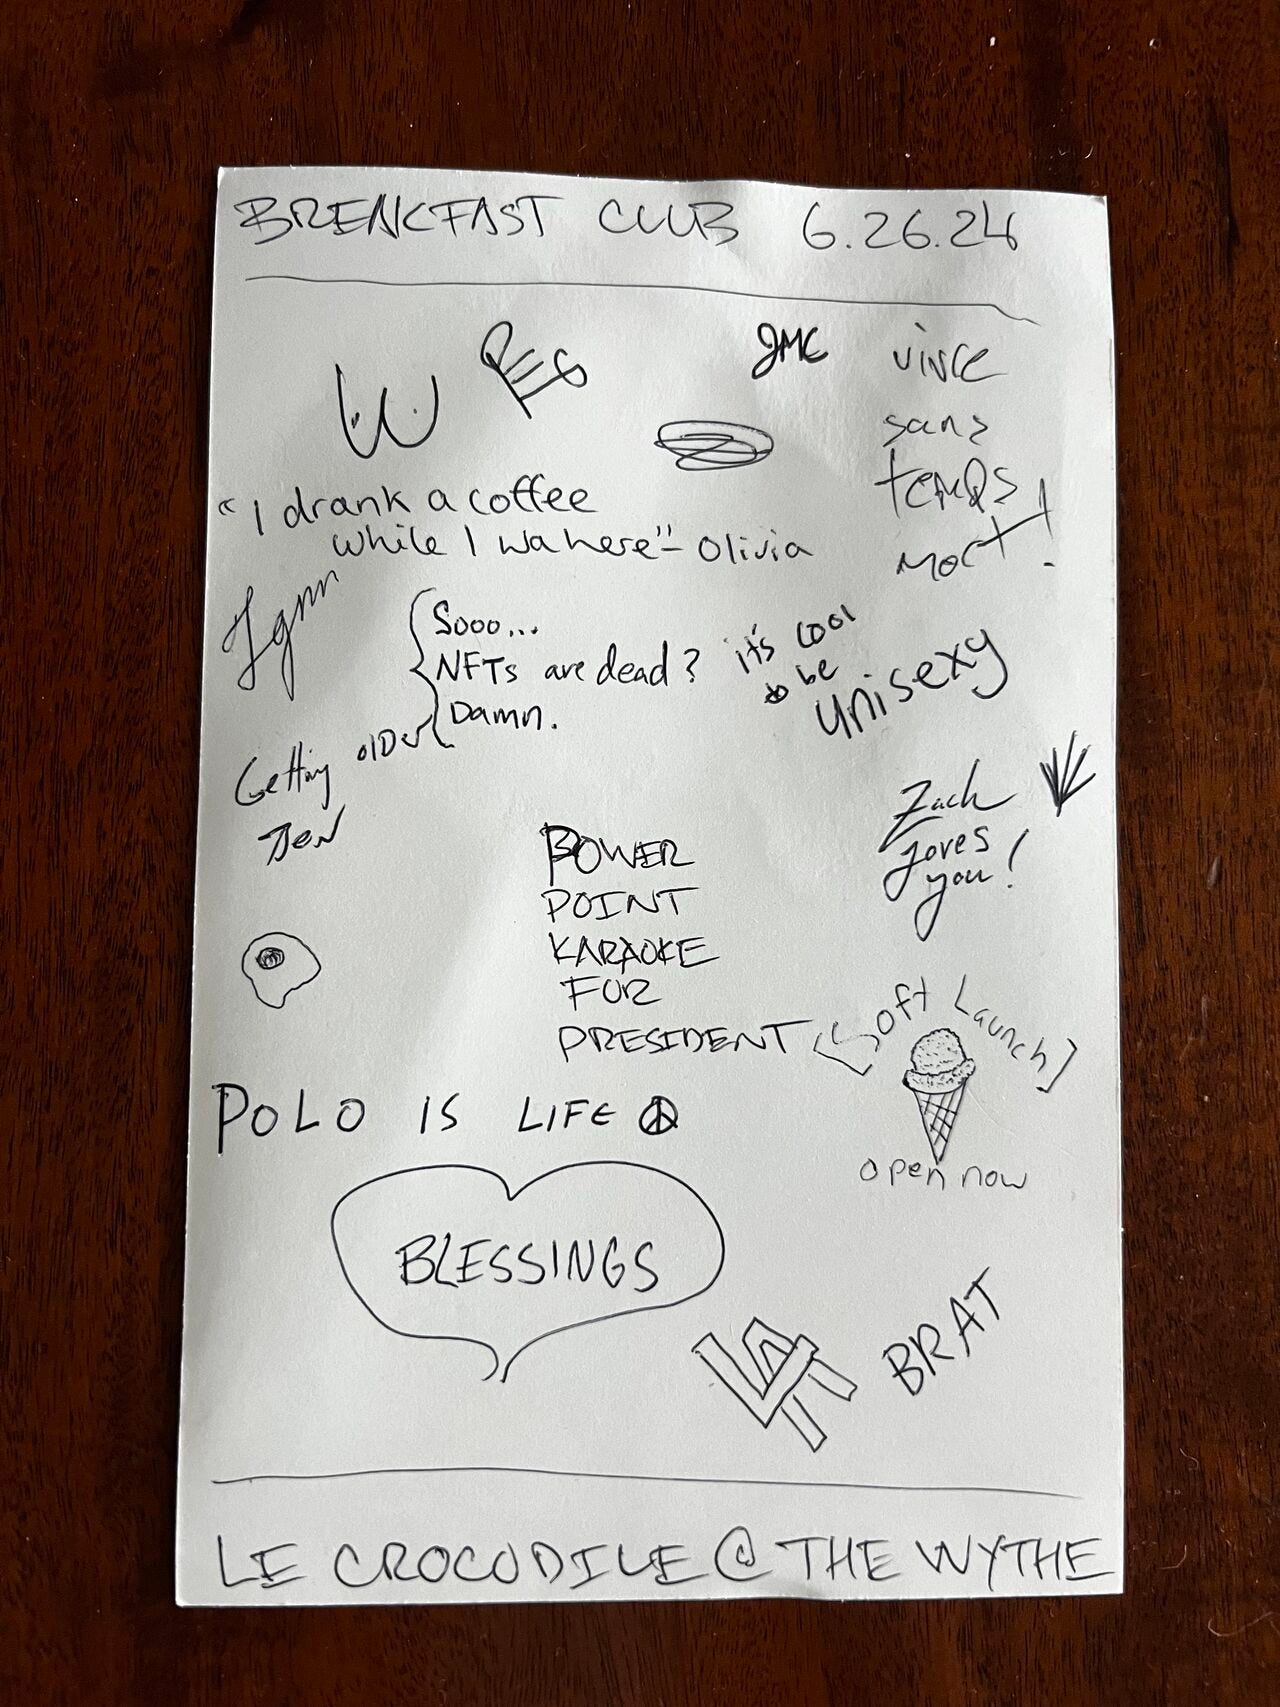 BREAKFAST CLUB 6.26.24
JMC
vivre
sans
temps
mort!
"I drank a coffee
while I wa here" - Olivia
Sooo...
NFTs are dead?
Damn.
it's cool
to be
unisexy
Getting older
Zach
loves
you!
POWER
POINT
KARAOKE
FOR
PRESIDENT
[Soft Launch]
open now
POLO IS LIFE
BLESSINGS
LA
BRAT
LE CROCODILE @ THE WYTHE